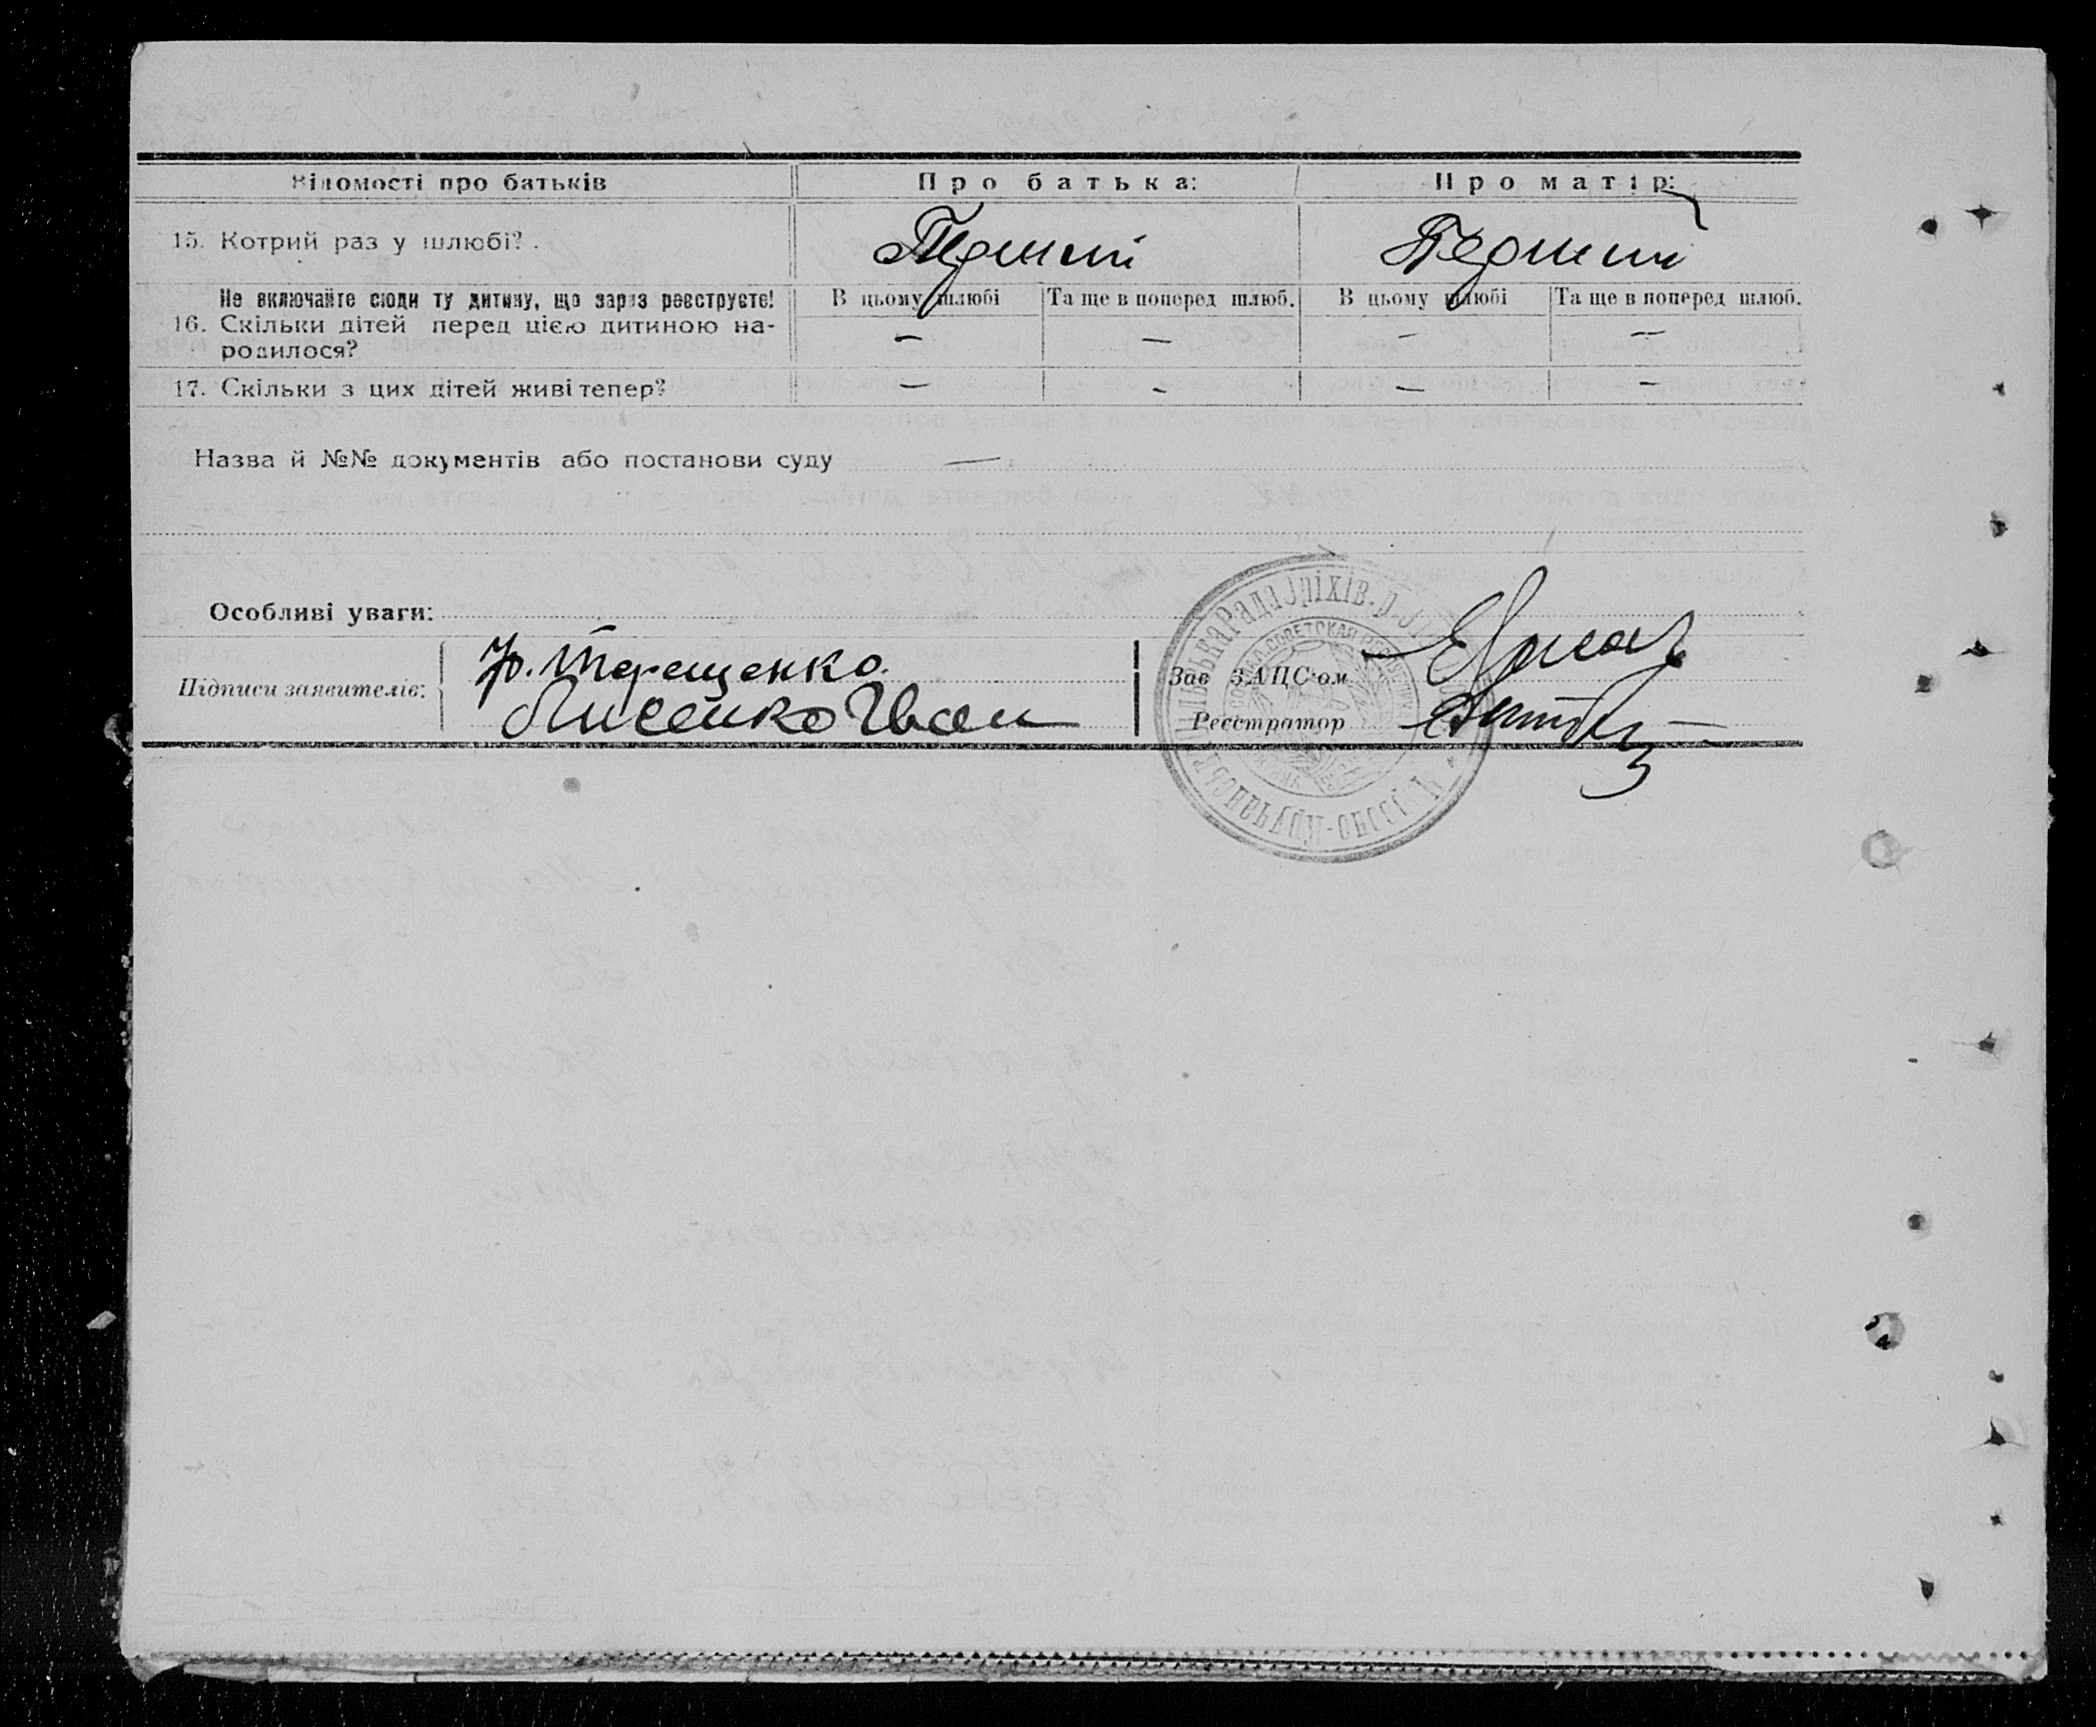 Відомості про батьків
Про батька:
Про матір:
15. Котрий раз у шлюбі? .
Перший
Перший
Не включайте сюди ту дитину, що зараз реєструєте!
В цьому шлюбі
Та ще в поперед шлюб.
В цьому шлюбі
Та ще в поперед шлюб.
16. Скільки дітей перед цією дитиною на-
родилося?
—
—
—
—
17. Скільки з цих дітей живі тепер?
—
-
—
—
Назва й №№ документів або постанови суду —
Особливі уваги:
Підписи заявителів:
Терещенко
Лисенко Іван
Зав ЗАЦС'ом
Реєстратор